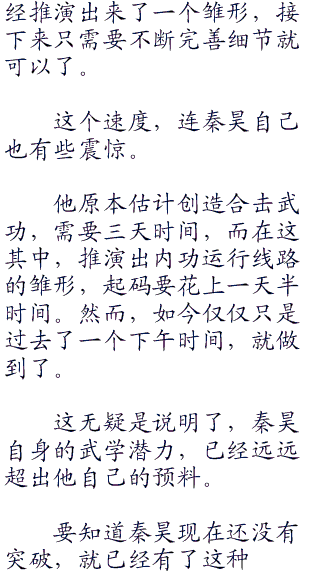 经推演出来了一个雏形，接
下来只需要不断完善细节就
可以了。
这个速度，连秦昊自己
也有些震惊。
他原本估计创造合击武
功，需要三天时间，而在这
其中，推演出内功运行线路
的雏形，起码要花上一天半
时间。然而，如今仅仅只是
过去了一个下午时间，就做
到了。
这无疑是说明了，秦昊
自身的武学潜力，已经远远
超出他自己的预料。
要知道秦昊现在还没有
突破，就已经有了这种